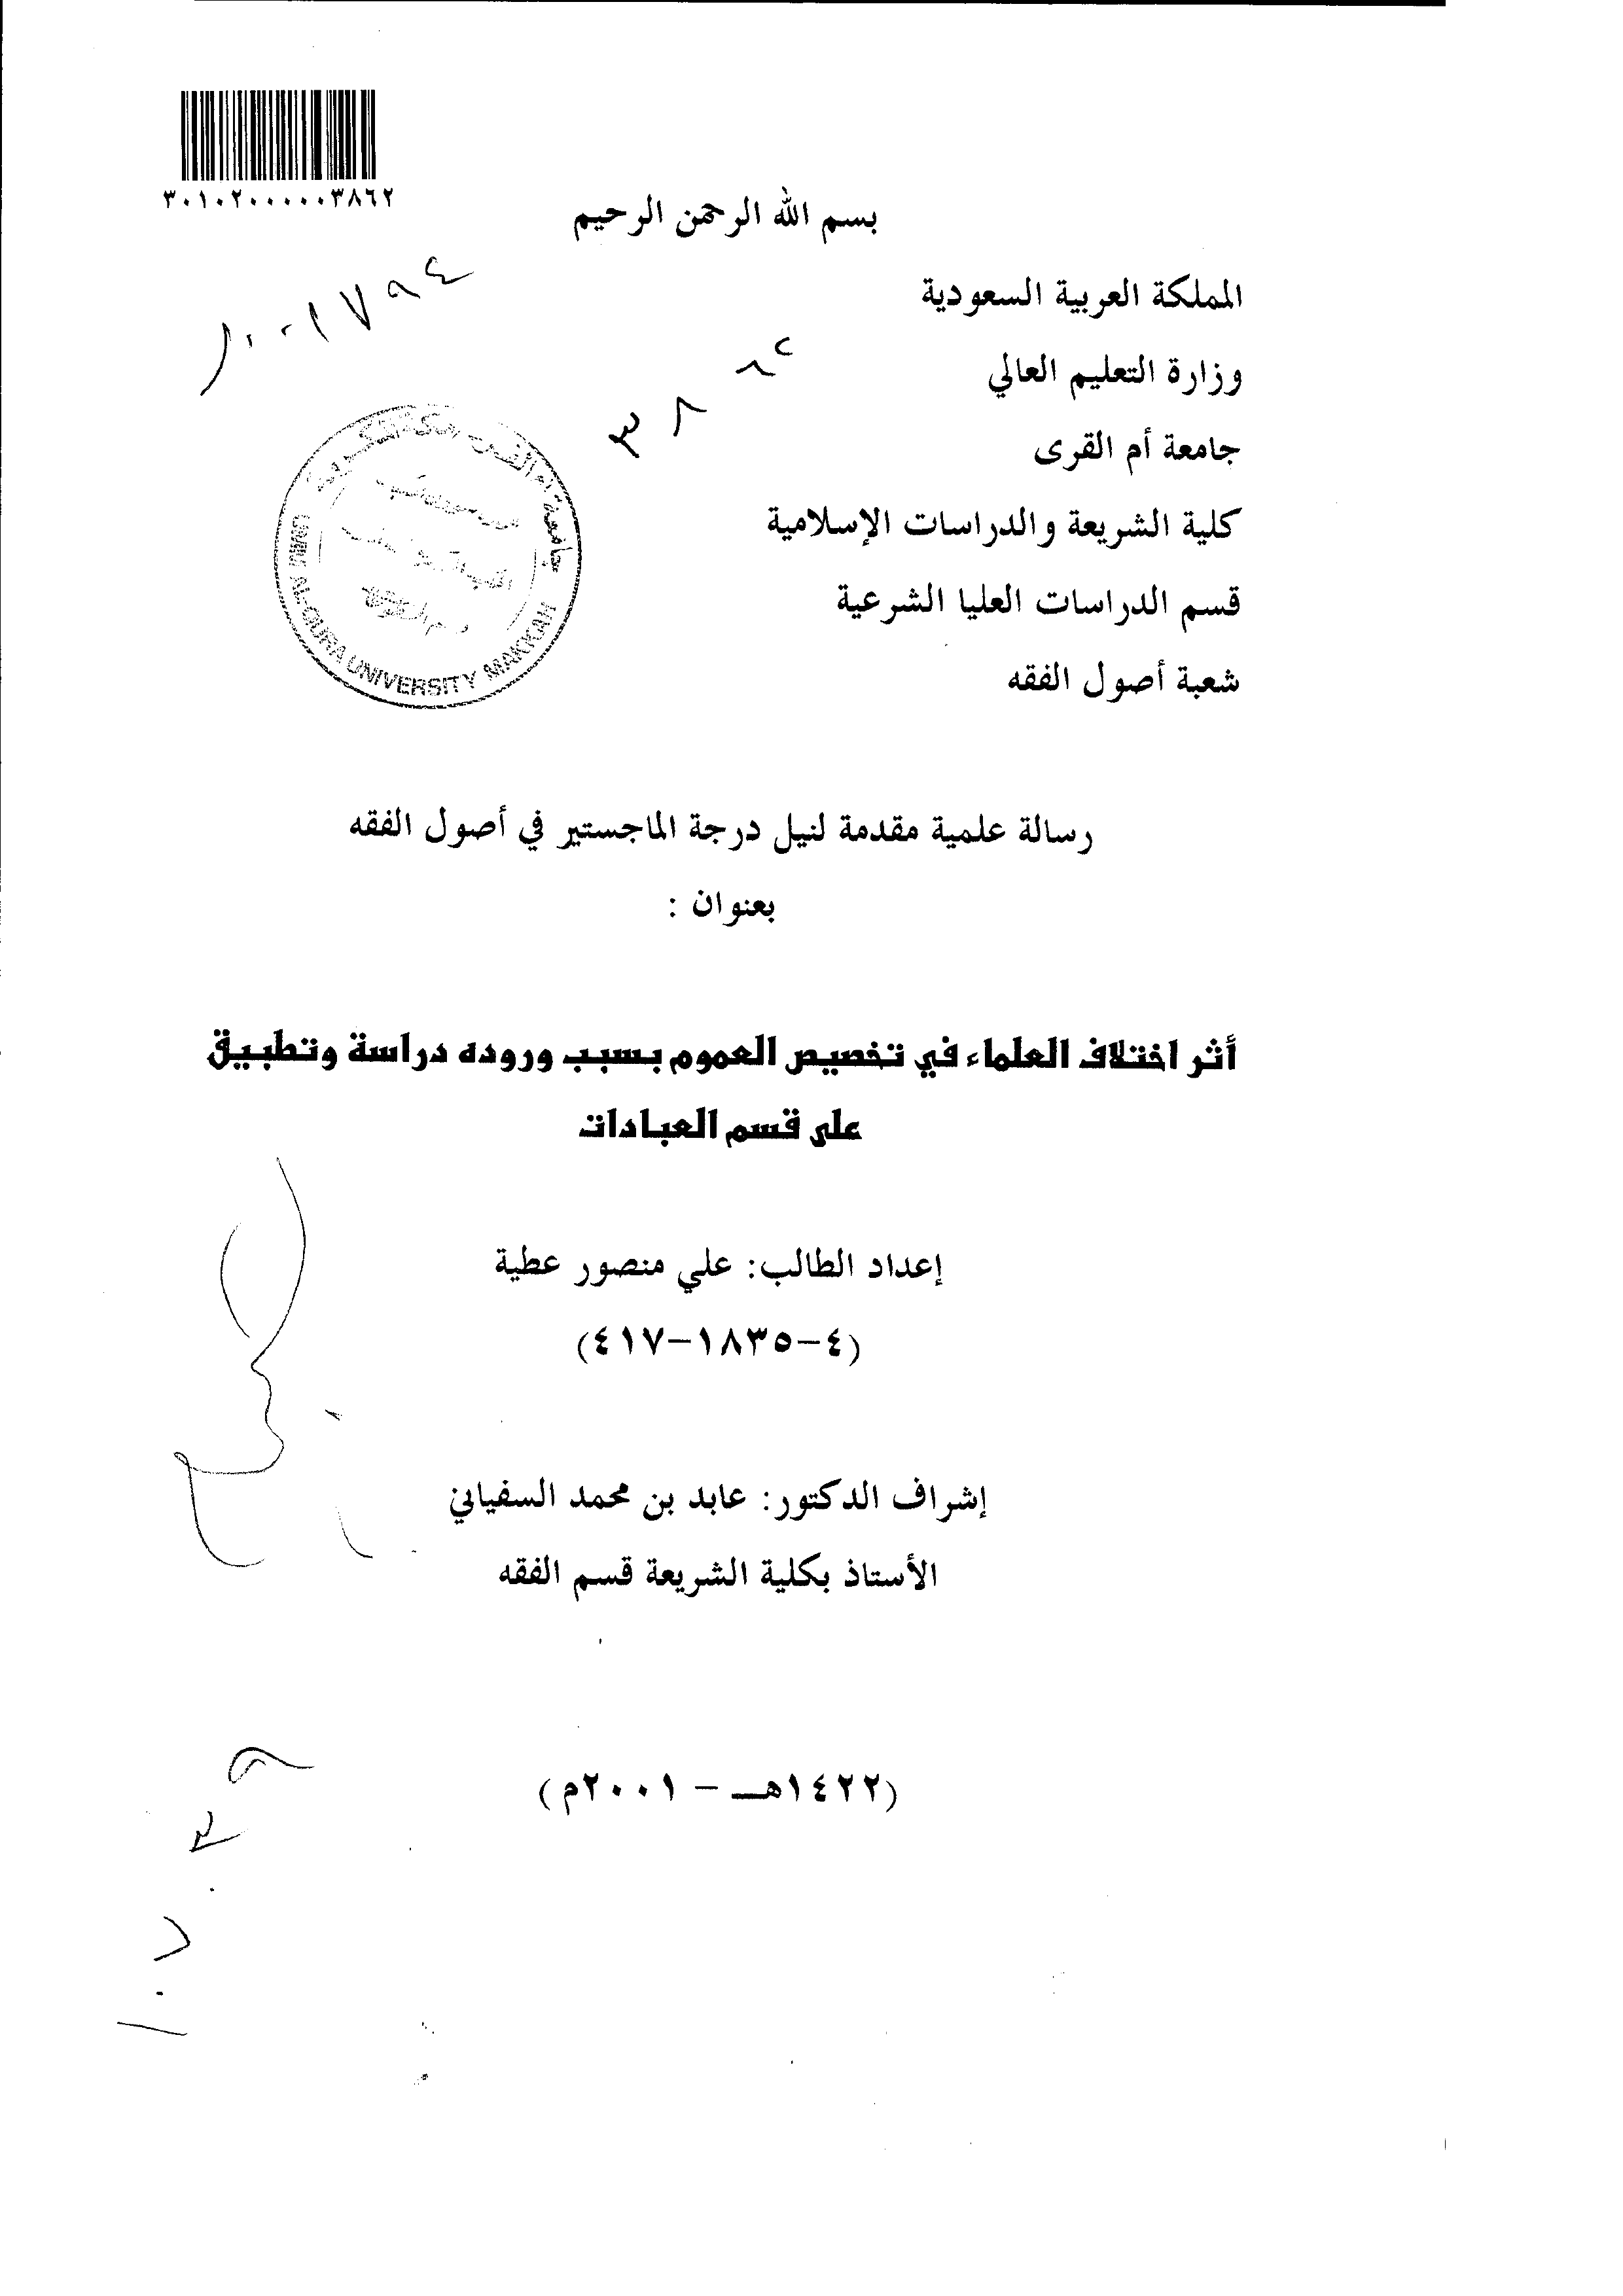 ٣٠١٠٢٠٠٠٠٠٣٨٦٢
بسم الله الرحمن الرحيم
المملكة العربية السعودية
وزارة التعليم العالي
جامعة أم القرى
كلية الشريعة والدراسات الإسلامية
قسم الدراسات العليا الشرعية
شعبة أصول الفقه
UMM AL-QURA UNIVERSITY MAKKAH
رسالة علمية مقدمة لنيل درجة الماجستير في أصول الفقه
بعنوان :
أثر اختلاف العلماء في تخصيص العموم بسبب وروده دراسة وتطبيق
على قسم العبادات
إعداد الطالب: علي منصور عطية
(٤-١٨٣٥-٤١٧)
إشراف الدكتور: عابد بن محمد السفياني
الأستاذ بكلية الشريعة قسم الفقه
(١٤٢٢هـ - ٢٠٠١م)